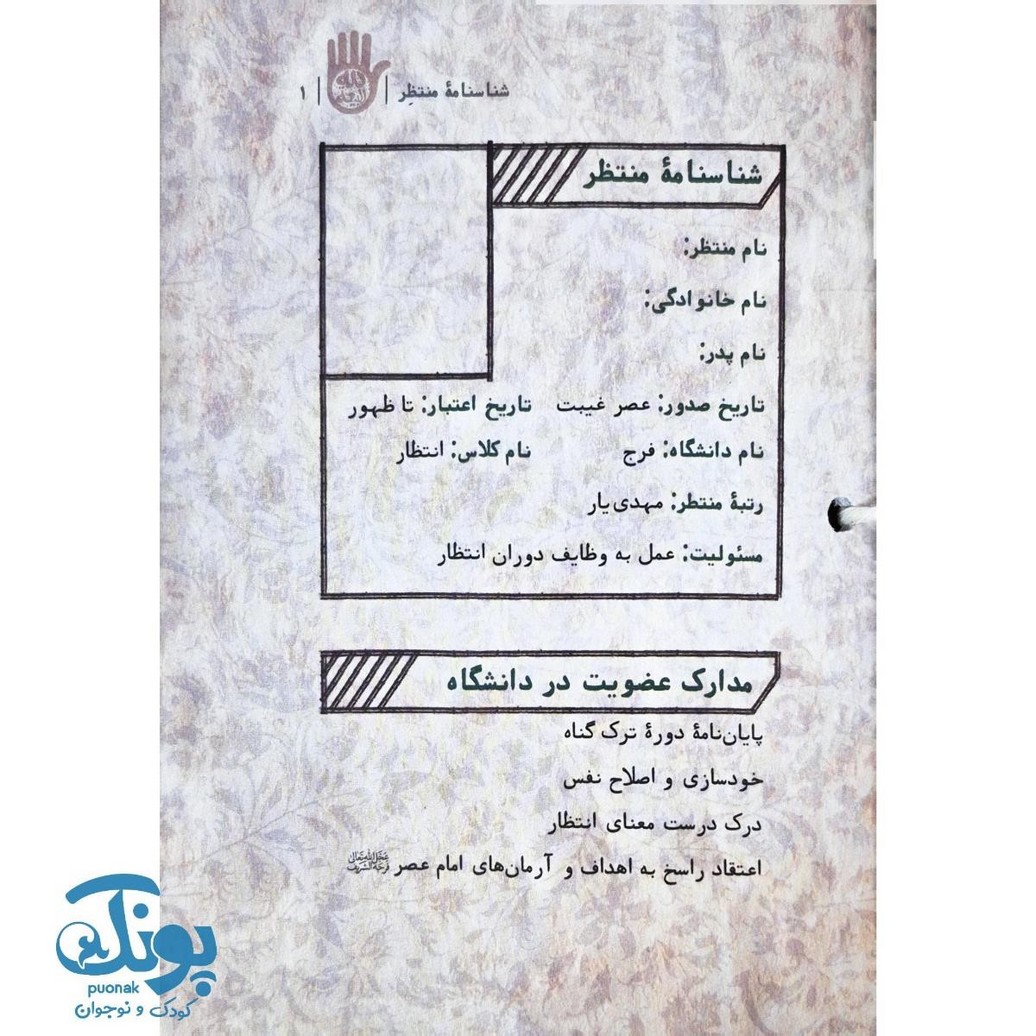 شناسنامهٔ منتظِر | | ۱
شناسنامهٔ منتظر
نام منتظر:
نام خانوادگی:
نام پدر:
تاریخ صدور: عصر غیبت تاریخ اعتبار: تا ظهور
نام دانشگاه: فرج نام کلاس: انتظار
رتبهٔ منتطر: مهدی‌یار
مسئولیت: عمل به وظایف دوران انتظار
مدارک عضویت در دانشگاه
پایان‌نامهٔ دورهٔ ترک گناه
خودسازی و اصلاح نفس
درک درست معنای انتظار
اعتقاد راسخ به اهداف و آرمان‌های امام عصر عجّل‌الله‌تعالی فرجه‌الشریف
پونک
puonak
کودک و نوجوان